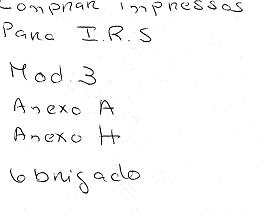 Comprar impressos
Para I.R.S
Mod. 3
Anexo A
Anexo H
Obrigado